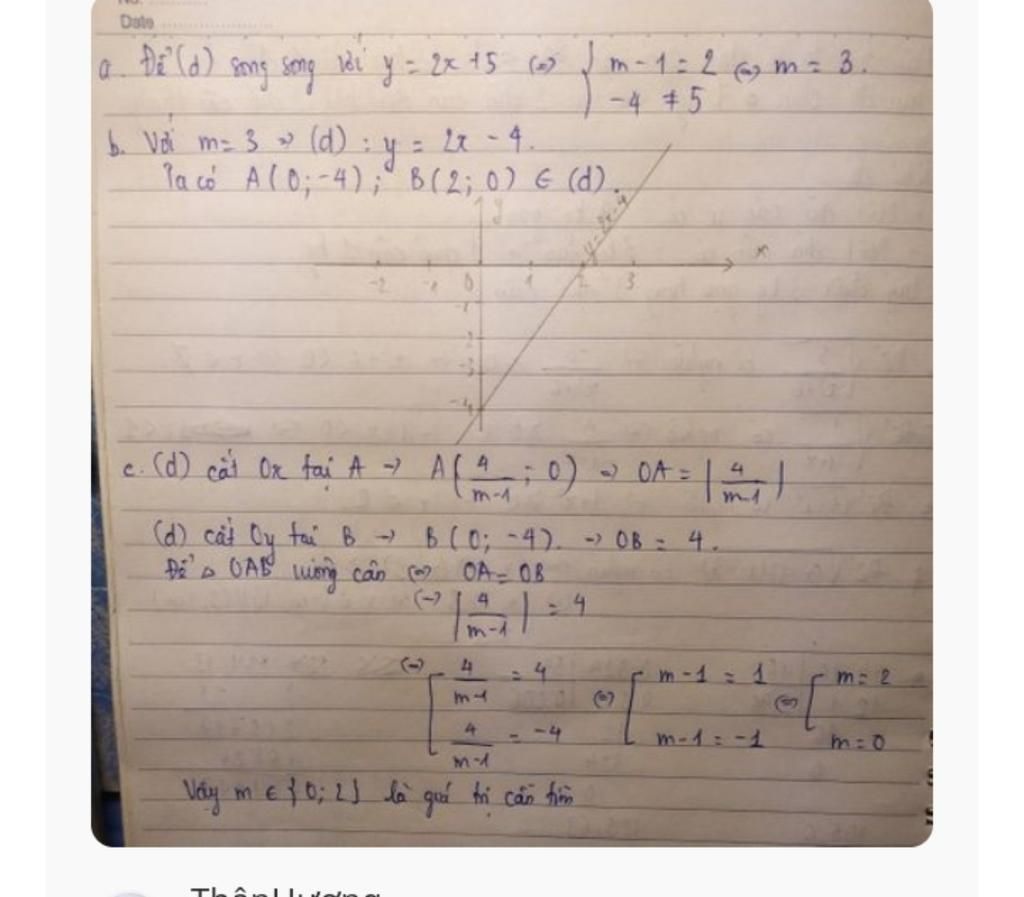 Date
a. Để (d) song song với y = 2x + 5 (=) { m - 1 = 2 (=) m = 3.
-4 ≠ 5
b. Với m = 3 => (d) : y = 2x - 4.
Ta có A(0; -4); B(2; 0) ∈ (d).
y
y = 2x - 4
x
-2 -1 0 1 2 3
-1
-2
-3
-4
c. (d) cắt Ox tại A -> A(4/(m-1); 0) => OA = |4/(m-1)|
(d) cắt Oy tại B -> B(0; -4). -> OB = 4.
Để Δ OAB vuông cân (=) OA = OB
(=) |4/(m-1)| = 4
(=) [ 4/(m-1) = 4 (=) [ m - 1 = 1 (=) [ m = 2
4/(m-1) = -4 m - 1 = -1 m = 0
Vậy m ∈ {0; 2} là giá trị cần tìm